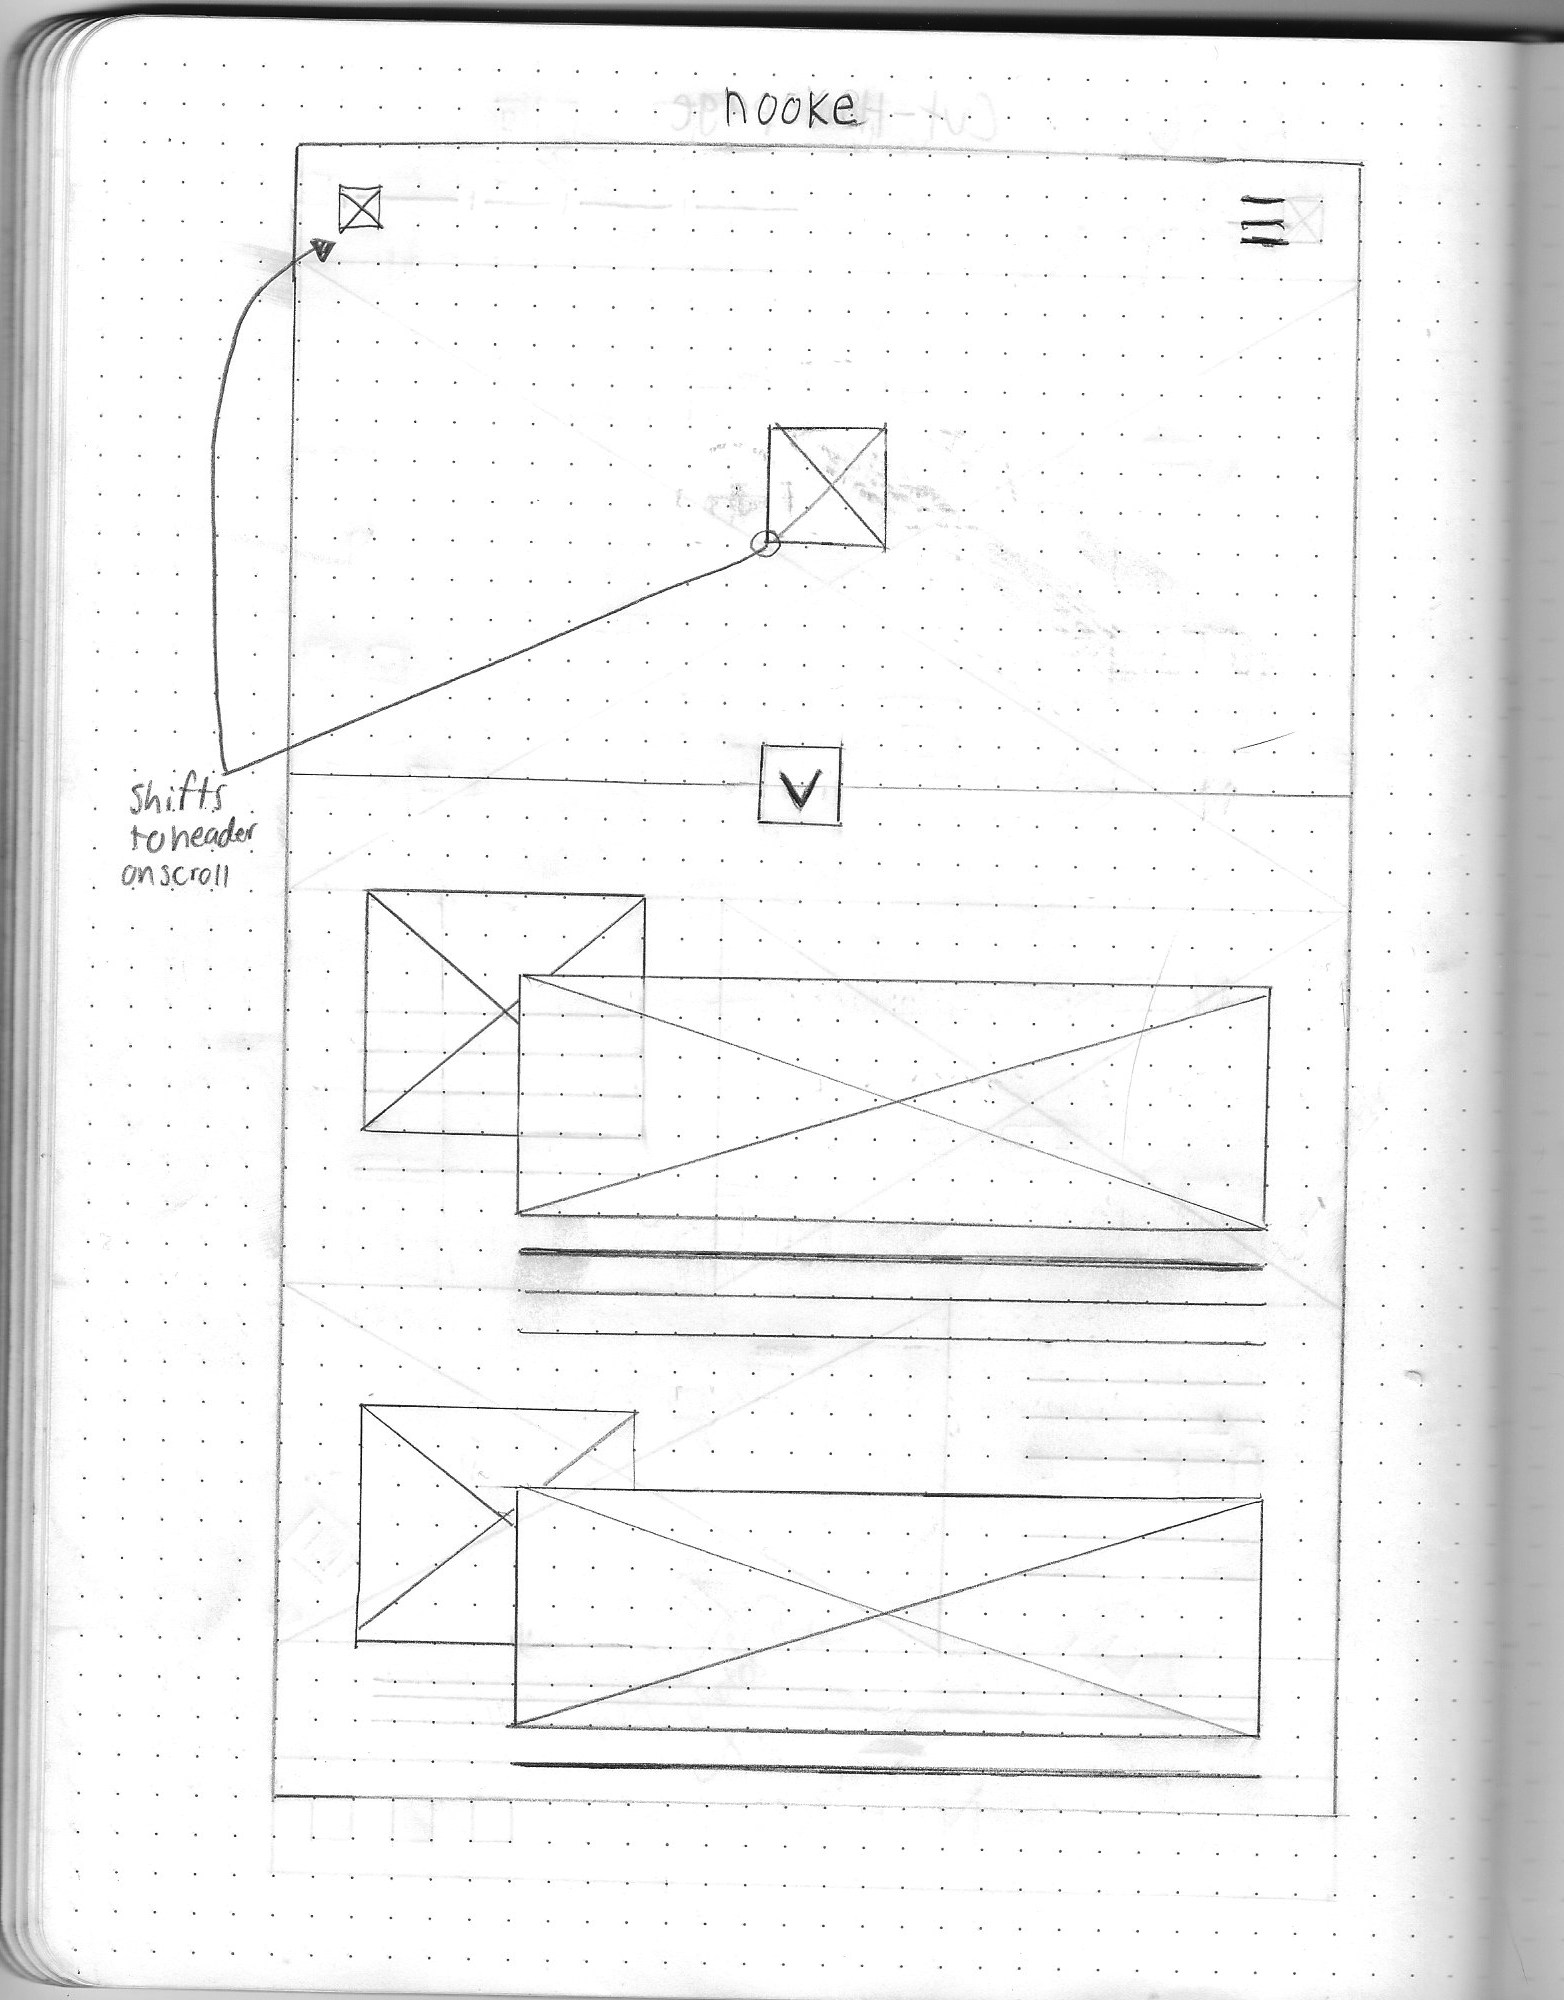 nooke
shifts
to header
on scroll